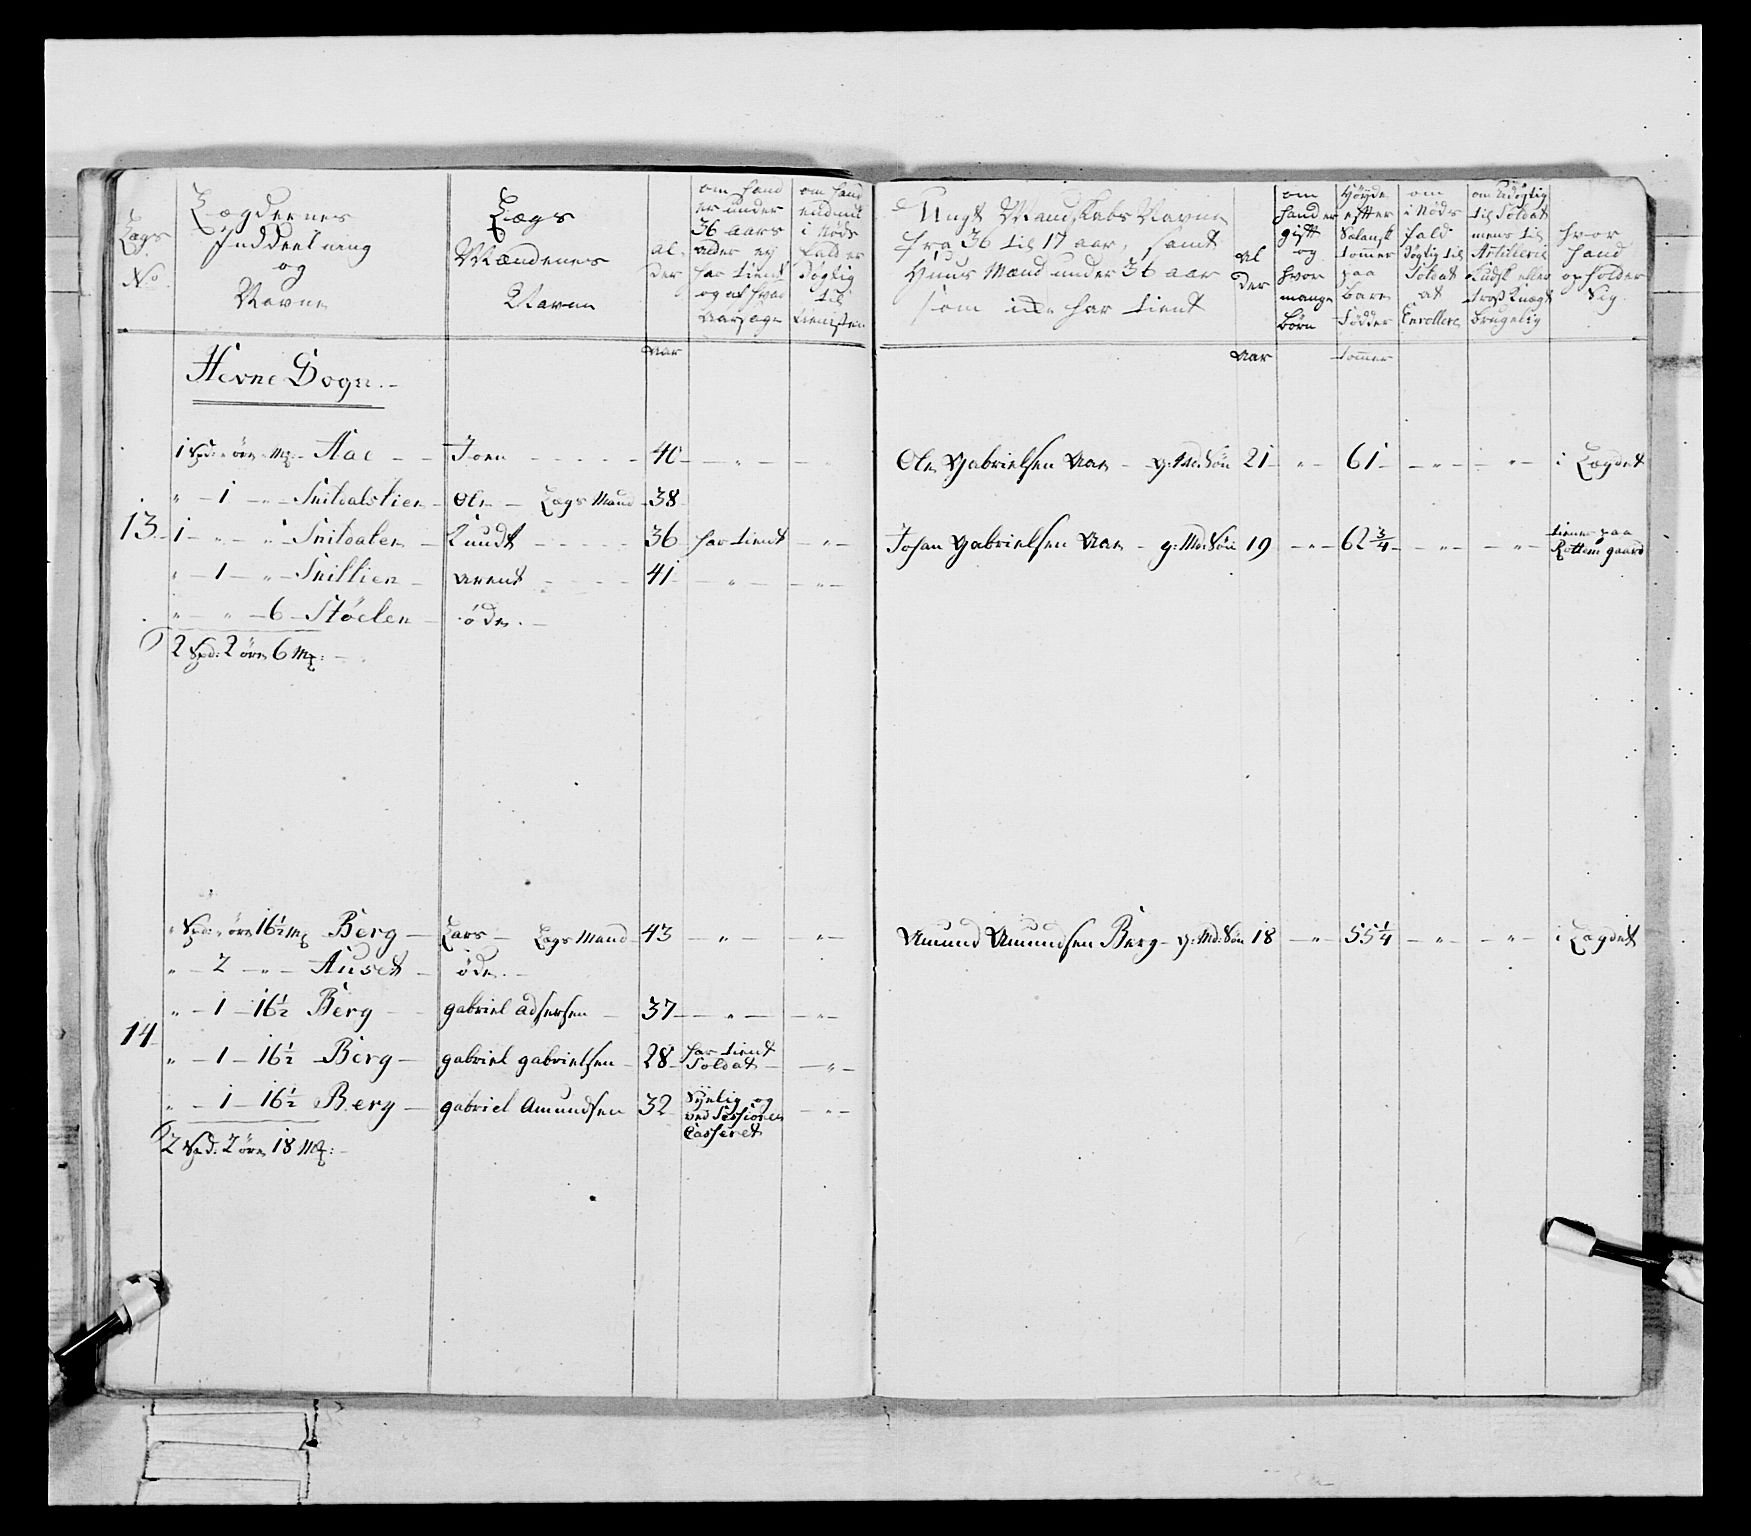 Lægs
No.
Lægdernes
Inddeelning
og
Navne
Lægs
Mændenes
Navne
al-
der
om hand
er under
36 aars
alder ej
har tient
og af hvad
Aarsage
om hand
endnu
i Nøds
fald er
dygtig
til
tienisten
Ungt Mandskabs Navne
fra 36 til 17 aar, samt
Huus Mænd under 36 aar
som icke har tient
al
der
om
hand er
gift
og
hvor
mange
Børn
Høyde
efter
Salansk
tomer
paa
bare
Fødder
om
i Nøds
fald
dygtig til
Soldat
at
Enrollere
om udygtig
til Soldat
mens til
Artillerie
Kudsk eller
Tros Knægt
brugelig
hvor
hand
opholder
sig.
aar
aar
tommer
Hevne Sogn.-
1 Spd: " öre " Mg: - Aae - - Joen - - - - - 40 - - " - Ole Gabrielsen Aae - g: Md: Søn 21 - " - 61 - - " - - " - i Lægdet
" - 1 - " - Snildalslien - Ole - Lægs Mand - 38
13. 1 - " - " Snildalen - Knudt - - - - 36 har tient - " - Johan Gabrielsen Aae - g: Md: Søn 19 - " - 62 3/4 - - " - - " - tiener paa
Rottem gaard
" - 1 - " - Snillien - Arent - - - - 41 - " - - " -
" - " - 6 - Stöelen - öde. -
2 Spd: 2 öre 6 Mg: -
" Spd: " öre 16 1/2 Mg Berg - Lars - Lægs Mand - 43 - " - - " - Amund Amundsen Berg - g: Md: Søn 18 - " - 55 1/4 - " - - " - i Lægdet
" - 2 - " - Auset - öde. -
" - 1 - 16 1/2 Berg - gabriel Adsersen - 37 - " - - " -
14
" - 1 - 16 1/2 Berg - gabriel gabrielsen - 28 har tient
Soldat - - " -
" - 1 - 16 1/2 Berg - gabriel Amundsen 32 Sÿelig og
ved Sessionen
Casseret - " -
2 Spd: 2 öre 18 Mg: -